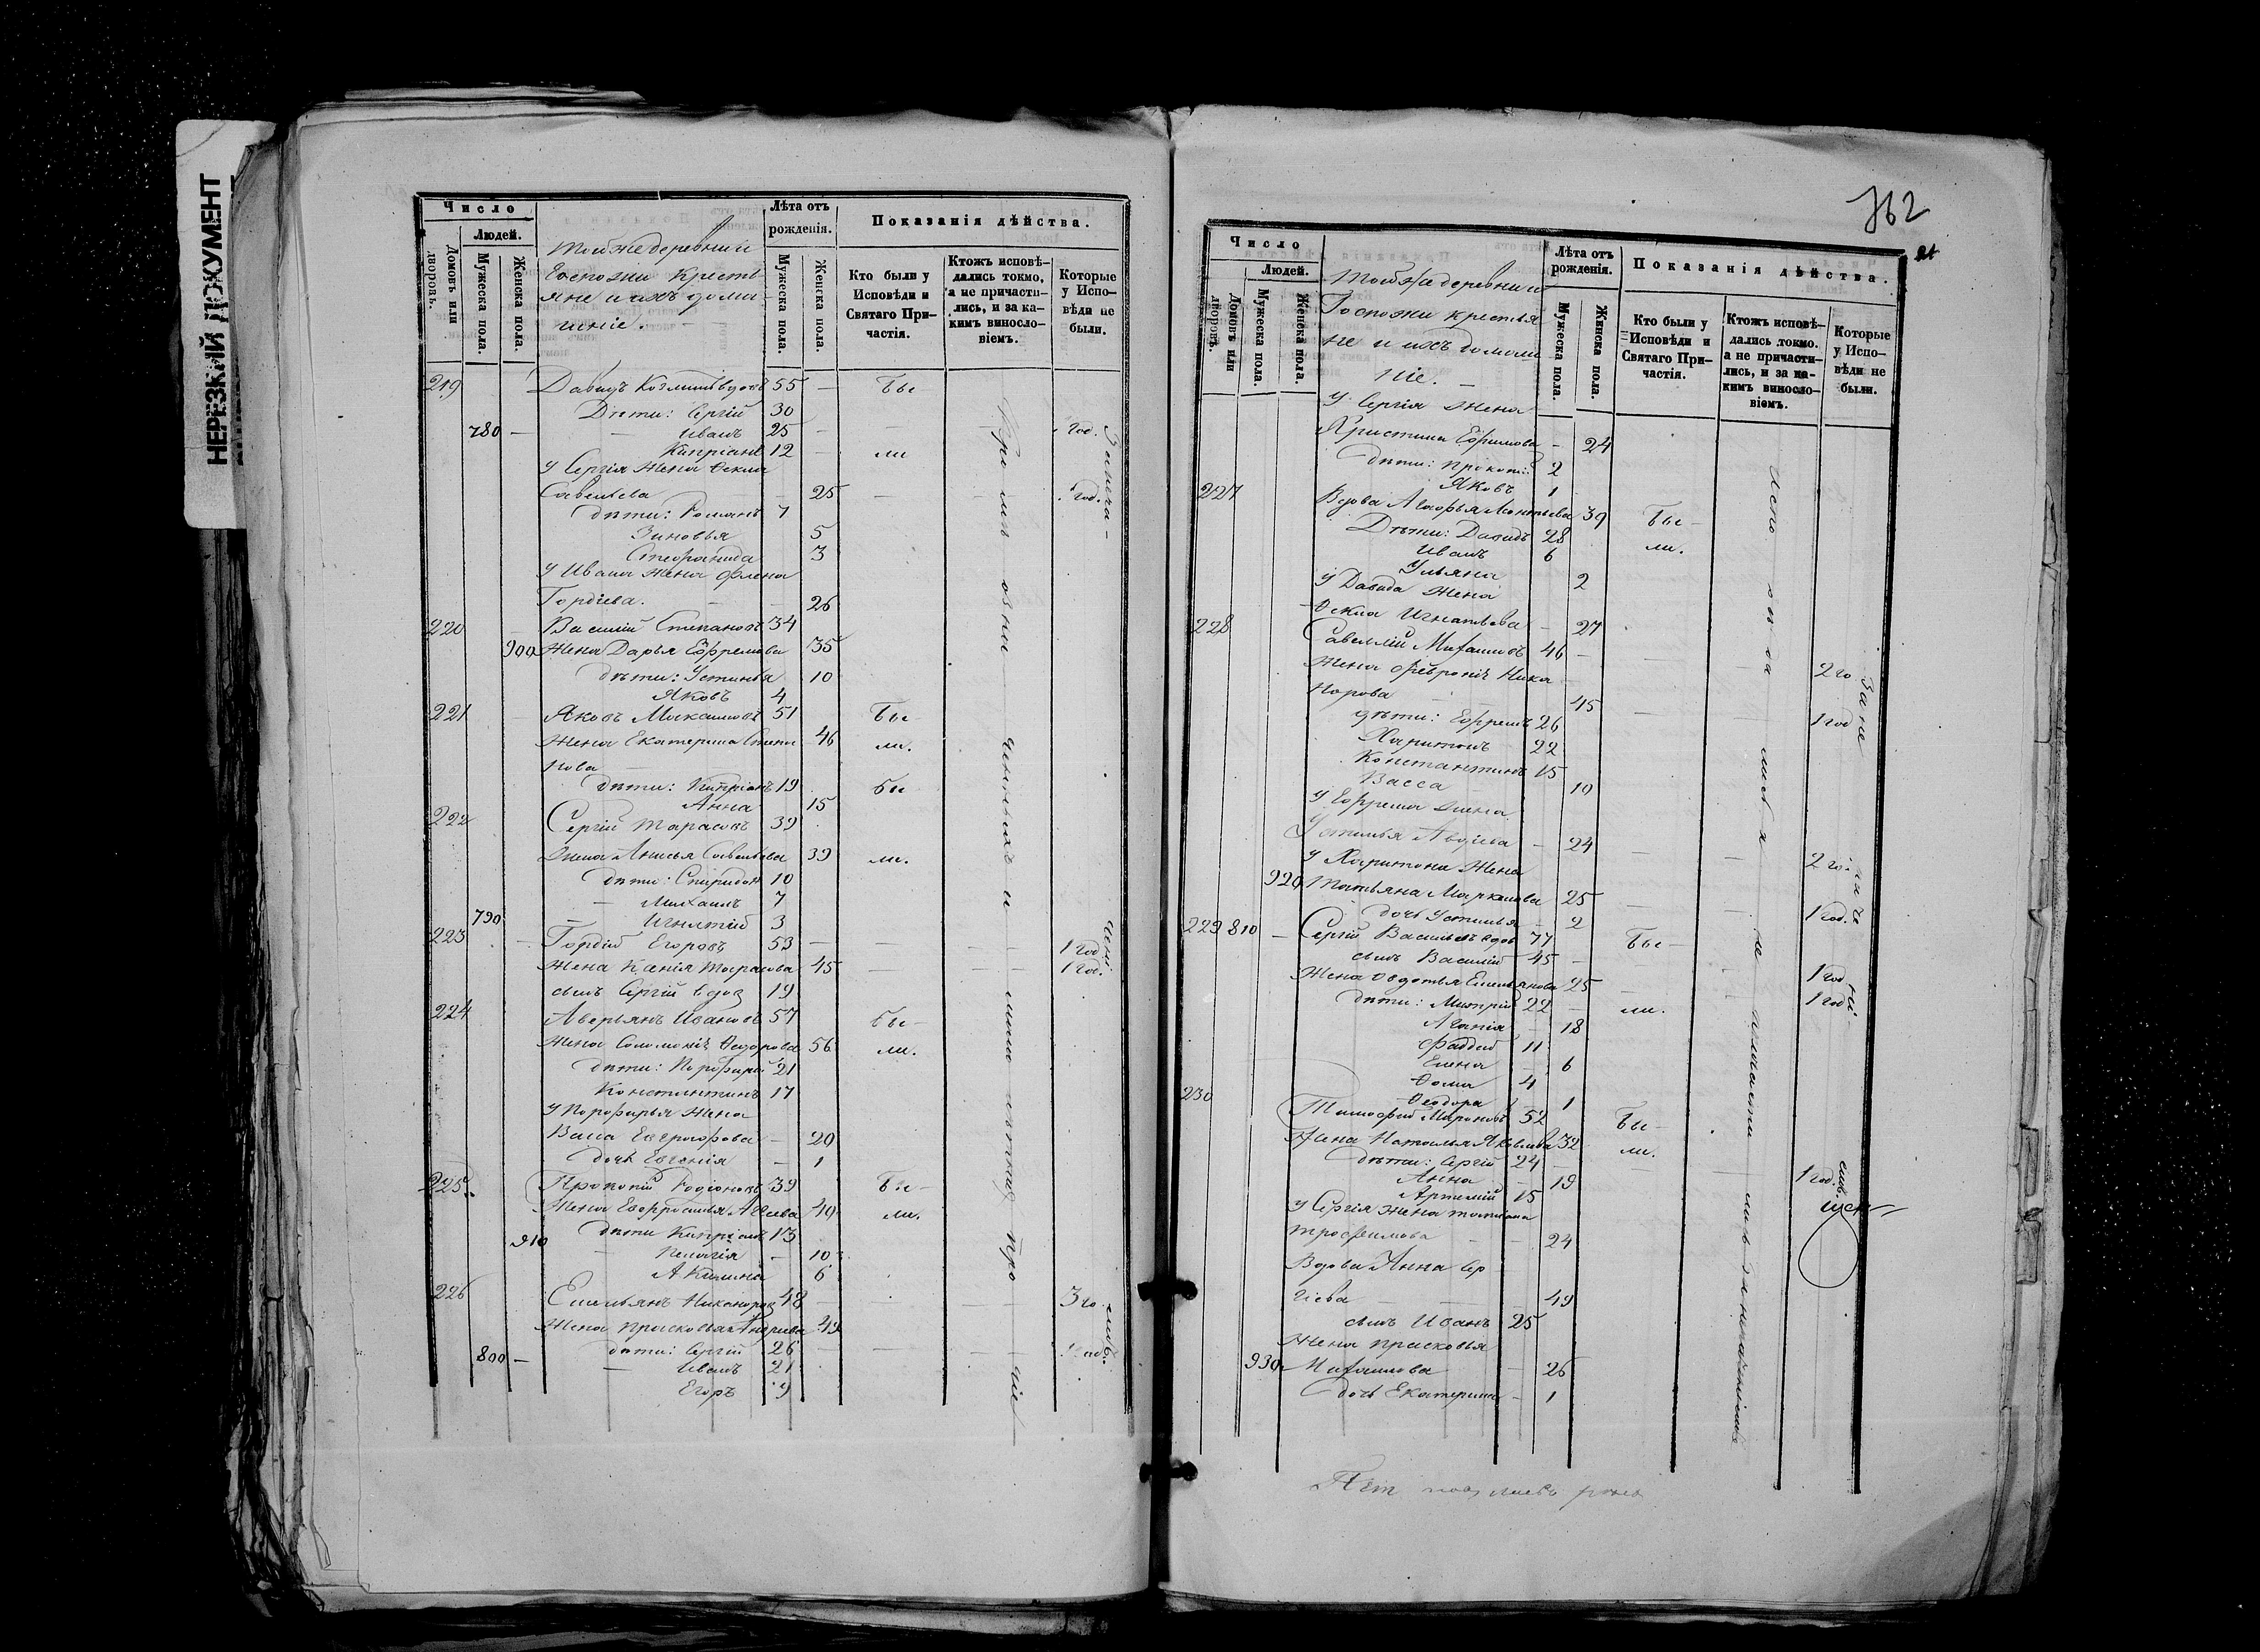 НЕРЕЗКИЙ ДОКУМЕНТ
Число
Людей.
Домовъ или дворовъ.
Мужеска пола.
Женска пола.
Той же деревни
Госпожи Крестья
яне и ихъ дома
шніе.
Лѣта отъ рожденія.
Мужеска пола.
Женска пола.
Показанія дѣйства.
Кто были у Исповѣди и Святаго Причастія.
Ктожъ исповѣдались токмо, а не причастились, и за какимъ винословіемъ.
Которые у Исповѣди не были.
219 Давидъ вдовъ 55 — бы
Дѣти: Сергій 30
780 — Иванъ 25 — 1 год.
Кипріанъ 12 — ли
У Сергія жена Ѳекла
Савельева 25 — 1 год.
дѣти: Романъ 7
Зиновья 5
Стефанида 3
У Ивана жена
Гордѣева. 26
220 Василій Степановъ 34
900 Жена Дарья Ефремова 35
дѣти: Устинья 10
Яковъ 4
221 Яковъ Максимовъ 51 бы
Жена Екатерина Степа 46 ли.
нова
дѣти: Кипріанъ 19 бы
Анна 15
222 Сергій Тарасовъ 39
Жена Анисья Савельева 39 ли.
дѣти: Спиридонъ 10
Михаилъ 7
790 Игнатій 3
223 Гордѣй Егоровъ 53 — 1 год
Жена Ксенія Тарасова 45 — 1 год.
сынъ Сергій вдов 19
224 Аверьянъ Ивановъ 57 бы
Жена Соломонія Ѳедорова 56 ли.
дѣти: Порфирій 21
Константинъ 17
У Порфирья Жена
Васса 20
дочь Евгенія — 1
225. Прокопій Родіоновъ 39 бы
Жена Евфросинья 40 ли.
910 дѣти Кипріанъ 13
Пелагія — 10
Акилина 6
226 Емельянъ Никаноров 48 — 3 го.
Жена Прасковья Андреева 49
дѣти: Сергій 26
800 — Иванъ 21
Егоръ 9
762
Число
Людей.
Домовъ или дворовъ.
Мужеска пола.
Женска пола.
Той же деревни
Госпожи крестья
не и ихъ домаш
ніе.
Лѣта отъ рожденія.
Мужеска пола.
Жинска пола.
Показанія дѣйства.
Кто были у Исповѣди и Святаго Причастія.
Ктожъ исповѣдались токмо. а не причастились, и за какимъ винословіемъ.
Которые у Исповѣди не были.
У Сергія жена
Христина Ефимова — 24
дѣти: Прокопій 2
Яковъ 1
227 Вдова Агафья Леонтьева 39 бы
Дѣти: Давидъ 28
Иванъ 6 ли.
Ульяна 2
У Давида Жена
Ѳекла Игнатьева — 27
228 Савелій 46 — 2 го
Жена Февронія Ника
норова 45 — 1 год
дѣти: Ефремъ 26
Харитонъ 22
Константинъ 15
Васса 10
У Ефрема жена
Устинья Авдѣева — 24 — 2 го.
У Харитона Жена
920 Татьяна Маркелова 25 — 1 год.
дочь Устинья — 2
229 810 — Сергій Васильевъ вдов 77 бы
сынъ Василій 45 — 1 год
Жена Ѳедотья Емельянова 25 — 1 год
дѣти: Митрій 22 — ли.
Агапія — 18
Фаддей 11
Елена — 6
Ѳома 4
Ѳеодора 1
230 Тимофей Мироновъ 52 бы
Жена Наталья Яковлева 32 ли.
дѣти: Сергій 24 — 1 год.
Анна — 19
Артемій 15
У Сергія жена Татіана
Трофимова 24
Вдова Анна Сер
гіева 49
сынъ Иванъ 25
Жена Прасковья
930 26
дочь Екатерина — 1